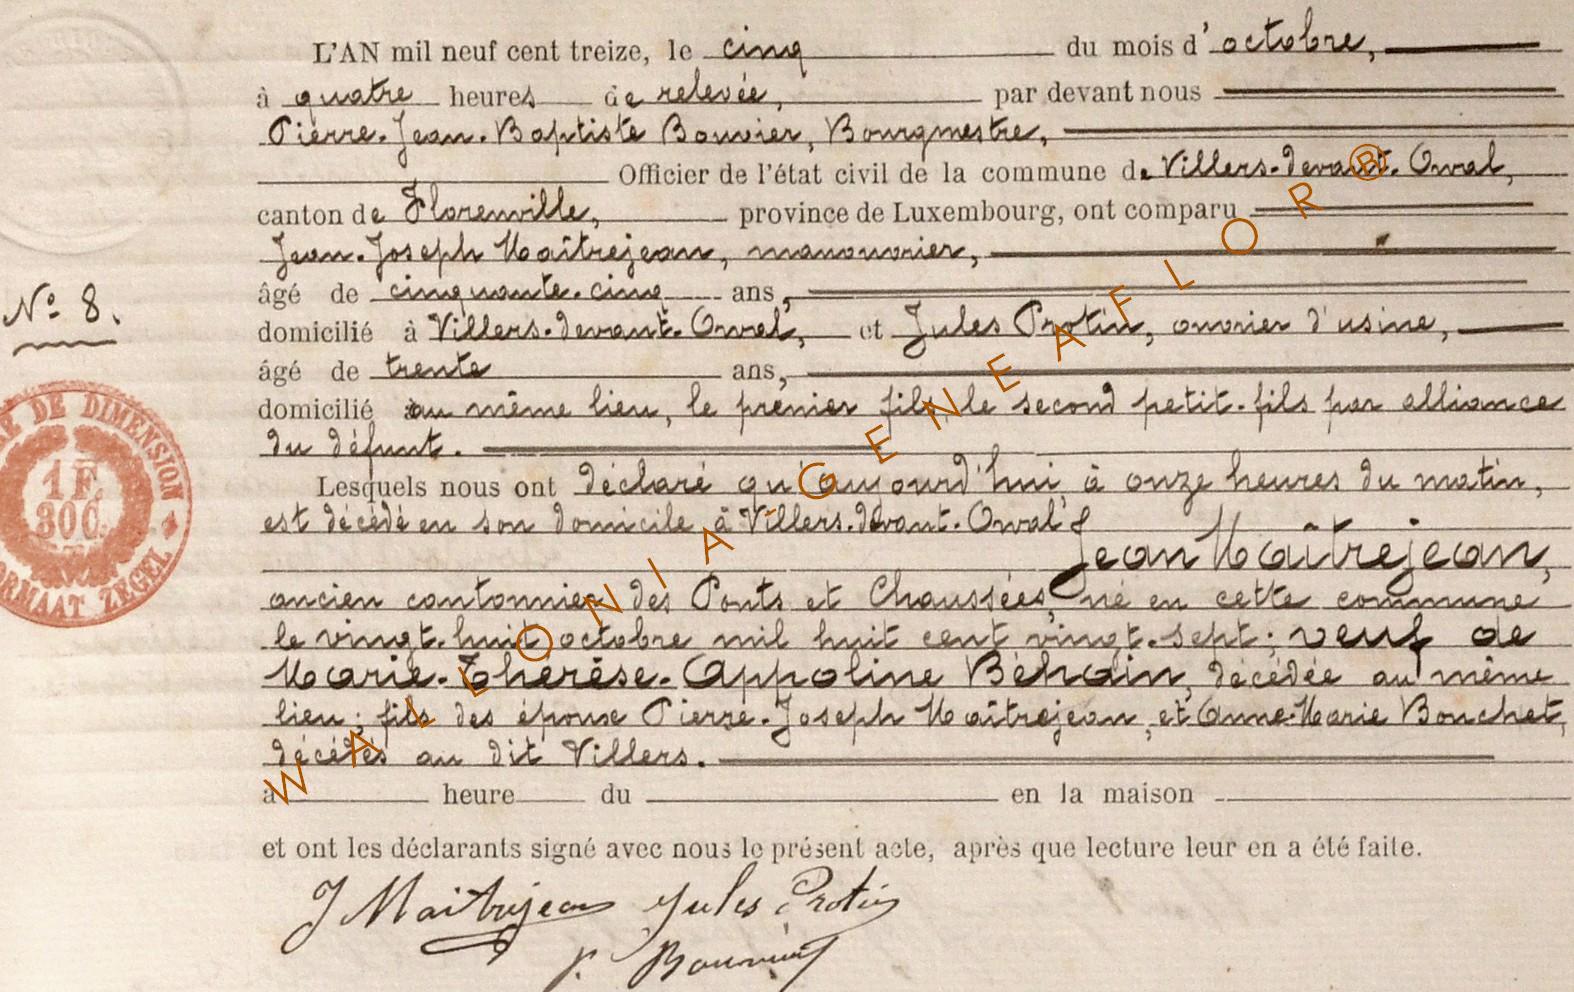 L'AN mil neuf cent treize, le cinq du mois d'octobre,
à quatre heures de relevée, par devant nous
Pierre-Jean-Baptiste Bouvier, Bourgmestre,
Officier de l'état civil de la commune de Villers-devant-Orval,
canton de Florenville, province de Luxembourg, ont comparu
Jean-Joseph Maîtrejean, manouvrier,
âgé de cinquante-cinq ans,
N° 8.
domicilié à Villers-devant-Orval, et Jules Protin, ouvrier d'usine,
âgé de trente ans,
domicilié au même lieu, le premier fils, le second petit-fils par alliance
du défunt.
Lesquels nous ont déclaré qu'aujourd'hui, à onze heures du matin,
est décédé en son domicile à Villers-devant-Orval
Jean Maîtrejean,
ancien cantonnier des Ponts et Chaussées, né en cette commune
le vingt-huit octobre mil huit cent vingt-sept; veuf de
Marie-Thérèse-Appoline Béhain, décédée au même
lieu; fils des époux Pierre-Joseph Maîtrejean, et Anne-Marie Bouchet,
décédés au dit Villers.
à heure du en la maison
et ont les déclarants signé avec nous le présent acte, après que lecture leur en a été faite.
J Maitrejean Jules Protin
P. Bouvier
DE DIMENSION
1 F.
30 C.
ZEGEL
WALLONIA GENEAFLOR ®